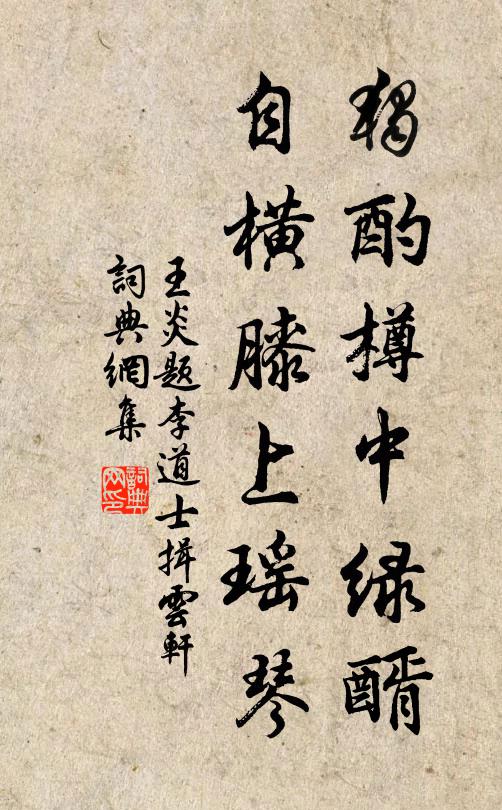 獨酌樽中緑醑
自橫膝上瑶琴
王炎题李道士揖雲軒
詞典網集
詞典
网印